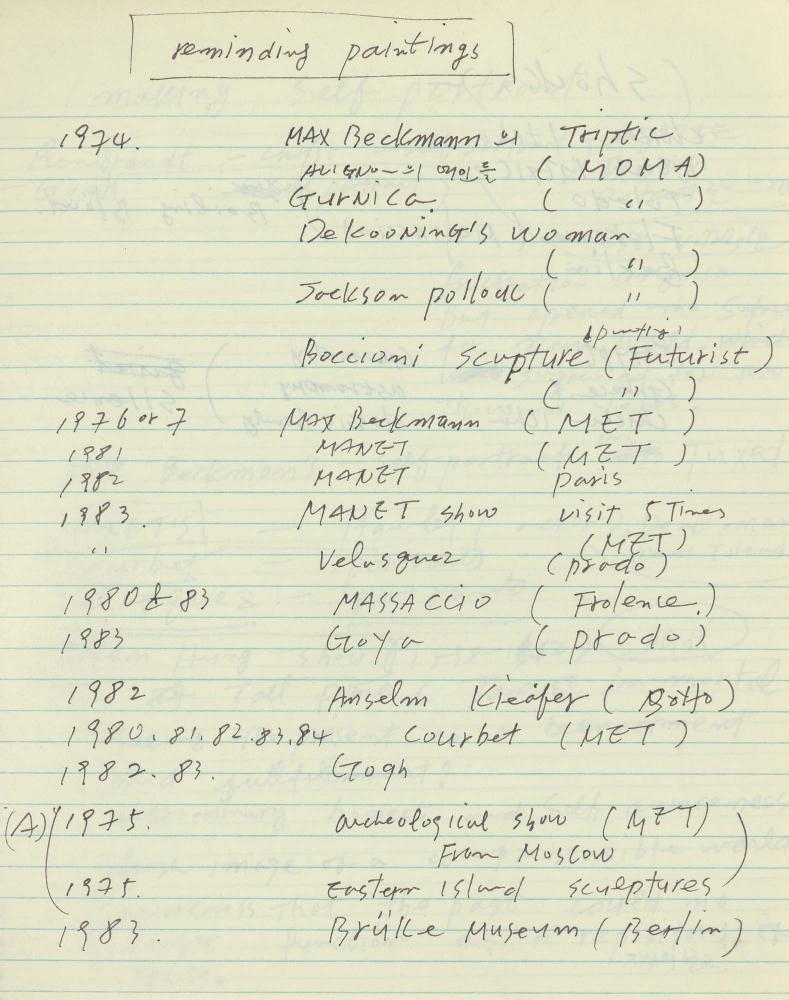 reminding paintings
1974. MAX Beckmann 의 Triptic
AVIGNON 의 여인들 ( MOMA )
GURNICA. ( " )
DeKOONING'S Woman
( " )
Jackson pollock ( " )
Boccioni scupture ( Futurist )
( " )
1976 or 7 MAX Beckmann ( MET )
1981 MANET ( MET )
1982 MANET paris
1983. MANET show visit 5 Times
(MET)
" Velasquez (prado)
1980 & 83 MASSACCIO ( Frolence.)
1983 Goya ( prado )
1982 Anselm Kieafer ( )
1980. 81. 82. 83. 84 Courbet ( MET )
1982. 83. Gogh
(A) 1975. archeological show ( MET )
From Moscow
1975. Eastern Island sculptures
1983. Brüke Museum ( Berlin )